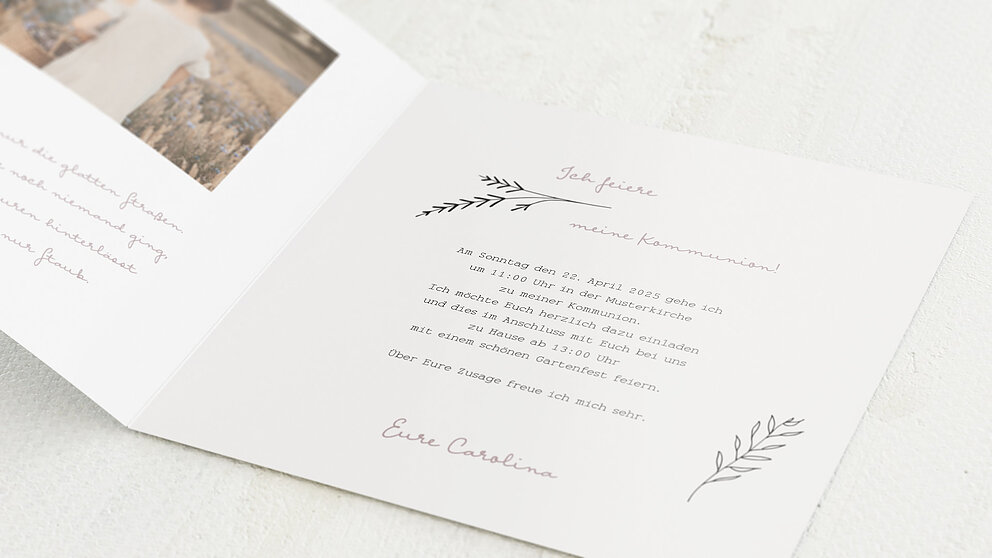 nur die glatten Straßen
noch niemand ging,
uren hinterlässt
nur Staub.
Ich feiere
meine Kommunion!
Am Sonntag den 22. April 2025 gehe ich
um 11:00 Uhr in der Musterkirche
zu meiner Kommunion.
Ich möchte Euch herzlich dazu einladen
und dies im Anschluss mit Euch bei uns
zu Hause ab 13:00 Uhr
mit einem schönen Gartenfest feiern.
Über Eure Zusage freue ich mich sehr.
Eure Carolina